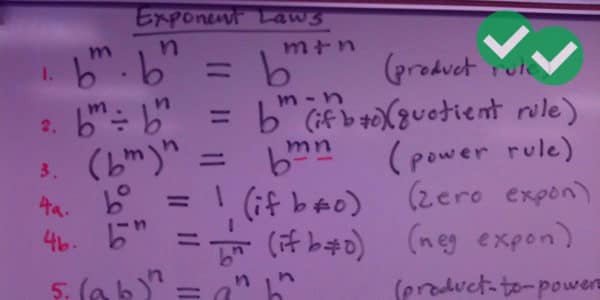 Exponent Laws
1. bᵐ · bⁿ = bᵐ⁺ⁿ (product rule)
2. bᵐ ÷ bⁿ = bᵐ⁻ⁿ (if b≠0) (quotient rule)
3. (bᵐ)ⁿ = bᵐⁿ (power rule)
4a. b⁰ = 1 (if b≠0) (zero expon)
4b. b⁻ⁿ = 1/bⁿ (if b≠0) (neg expon)
5. (ab)ⁿ = aⁿbⁿ (product-to-power